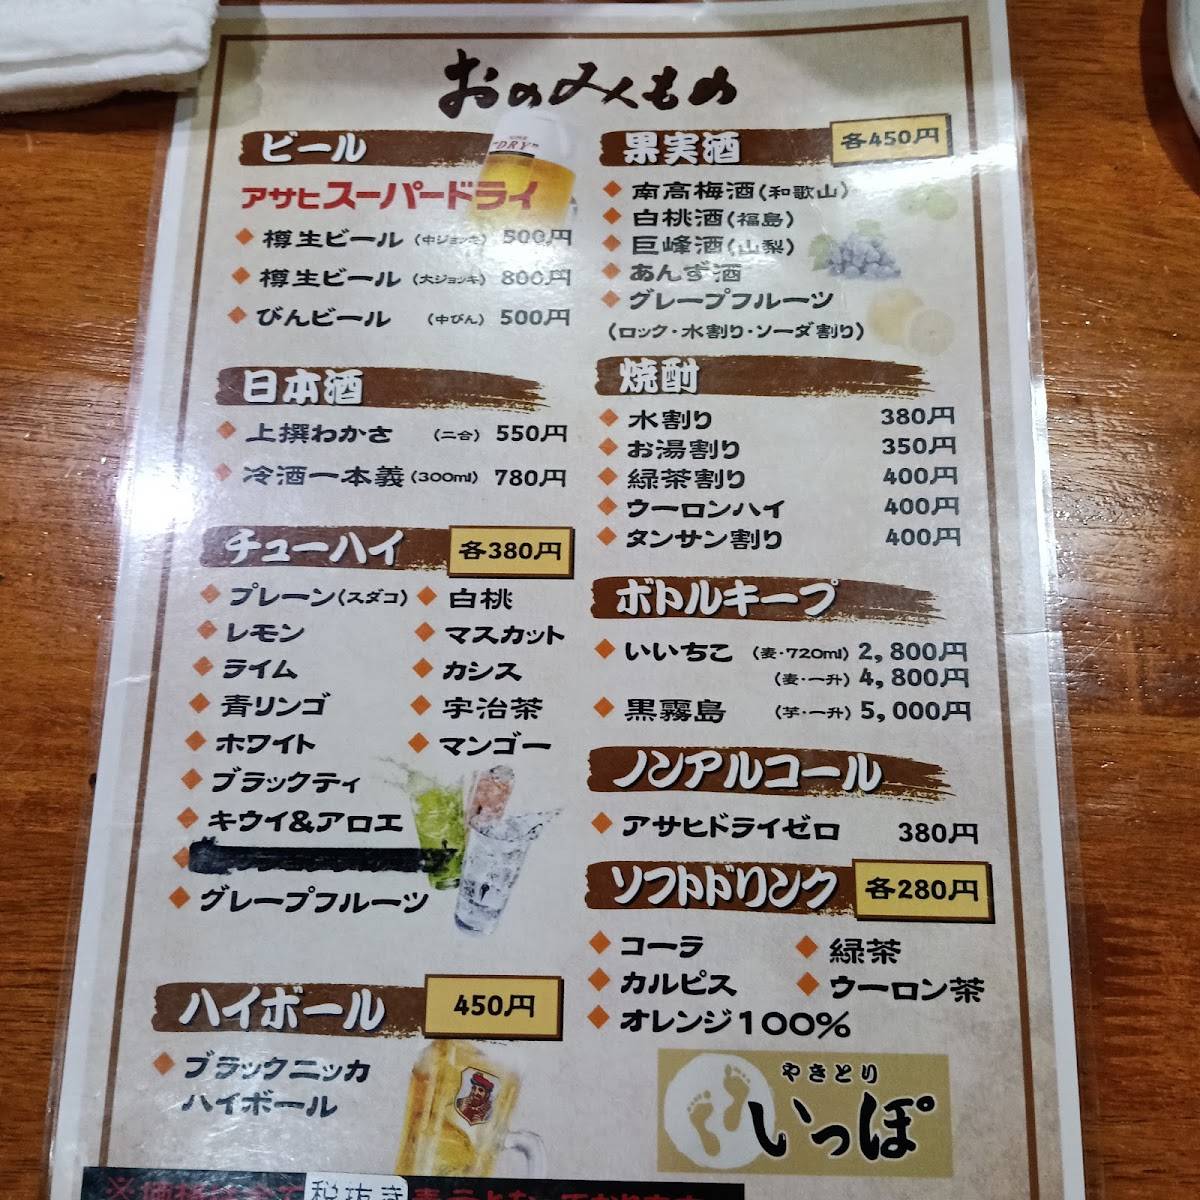 おのみくもの
ビール
アサヒスーパードライ
樽生ビール (中ジョッキ) 500円
樽生ビール (大ジョッキ) 800円
びんビール (中びん) 500円
日本酒
上撰わかさ (二合) 550円
冷酒一本義 (300ml) 780円
チューハイ 各380円
プレーン(スダコ)
レモン
ライム
青リンゴ
ホワイト
ブラックティ
キウイ&アロエ
グレープフルーツ
白桃
マスカット
カシス
宇治茶
マンゴー
ハイボール 450円
ブラックニッカ
ハイボール
果実酒 各450円
南高梅酒(和歌山)
白桃酒(福島)
巨峰酒(山梨)
あんず酒
グレープフルーツ
(ロック・水割り・ソーダ割り)
焼酎
水割り 380円
お湯割り 350円
緑茶割り 400円
ウーロンハイ 400円
タンサン割り 400円
ボトルキープ
いいちこ (麦・720ml) 2,800円
(麦・一升) 4,800円
黒霧島 (芋・一升) 5,000円
ノンアルコール
アサヒドライゼロ 380円
ソフトドリンク 各280円
コーラ
カルピス
オレンジ100%
緑茶
ウーロン茶
やきとり
いっぽ
"DRY"